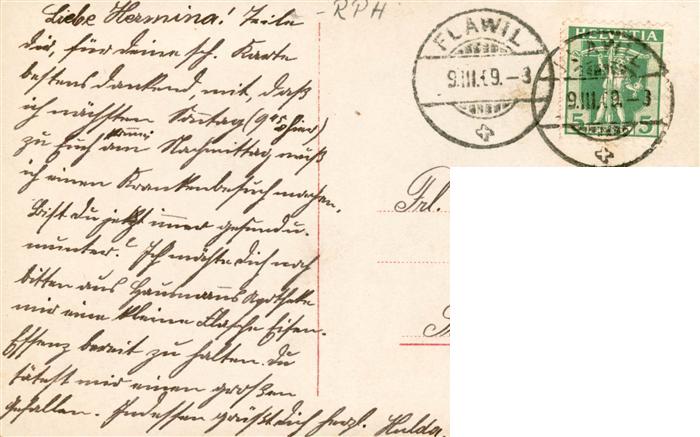 Liebe Hermina! Teile
dir, für deine sch. Karte
bestens dankend, mit, daß
ich nächsten Sonntag (9⁴⁵ hier)
zu Euch komme am Nachmittag muß
ich einen Krankenbesuch machen.
Bist du jetzt immer gesund u.
munter? Ich möchte dich noch
bitten aus Hausmanns Apotheke
mir eine kleine Flasche Eisen-
Essenz bereit zu halten. Du
tätest mir einen großen
Gefallen. Indessen grüßt dich herzl. Hulda.
-RPH
FLAWIL
9.III.09.-3
HELVETIA
5 5
FLAWIL
9.III.09.-3
Frl.